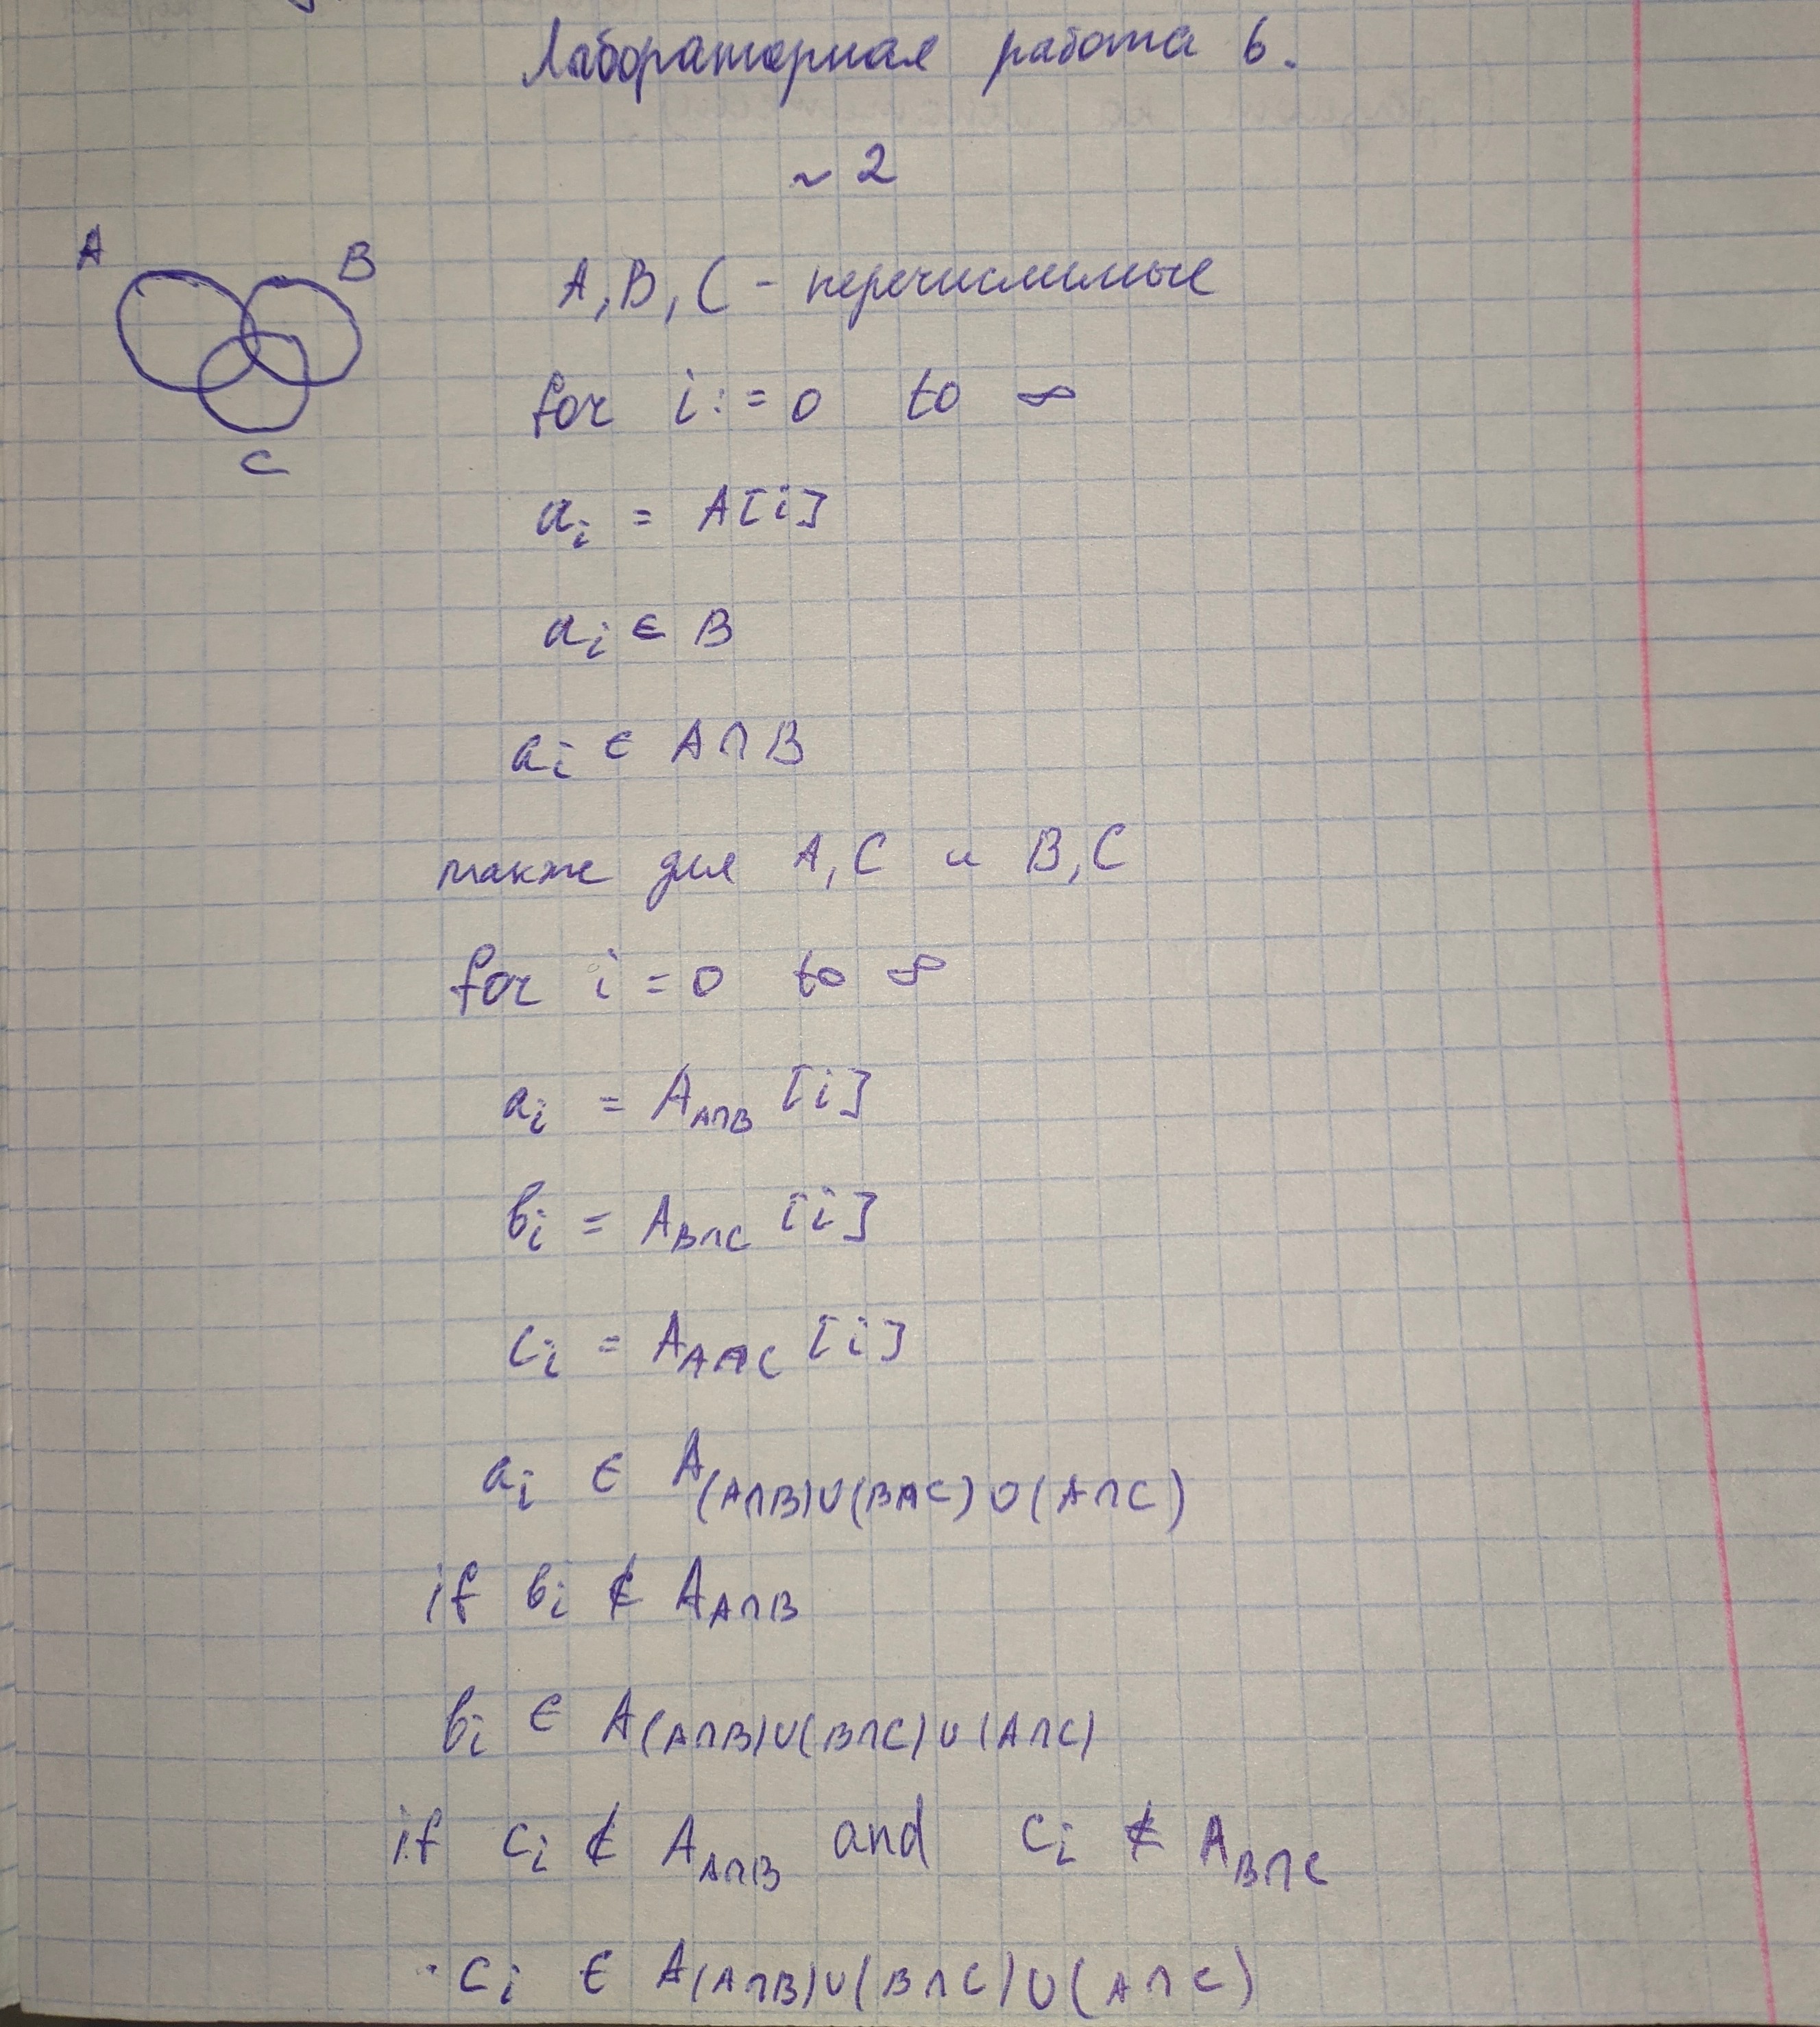 Лабораторная работа 6.
~ 2
A B
C
A, B, C - перечислимые
for i := 0 to ∞
aᵢ = A[i]
aᵢ ∈ B
aᵢ ∈ A∩B
также для A, C и B, C
for i = 0 to ∞
aᵢ = A_A∩B [i]
bᵢ = A_B∩C [i]
cᵢ = A_A∩C [i]
aᵢ ∈ A_(A∩B)∪(B∩C)∪(A∩C)
if bᵢ ∉ A_A∩B
bᵢ ∈ A_(A∩B)∪(B∩C)∪(A∩C)
if cᵢ ∉ A_A∩B and cᵢ ∉ A_B∩C
cᵢ ∈ A_(A∩B)∪(B∩C)∪(A∩C)